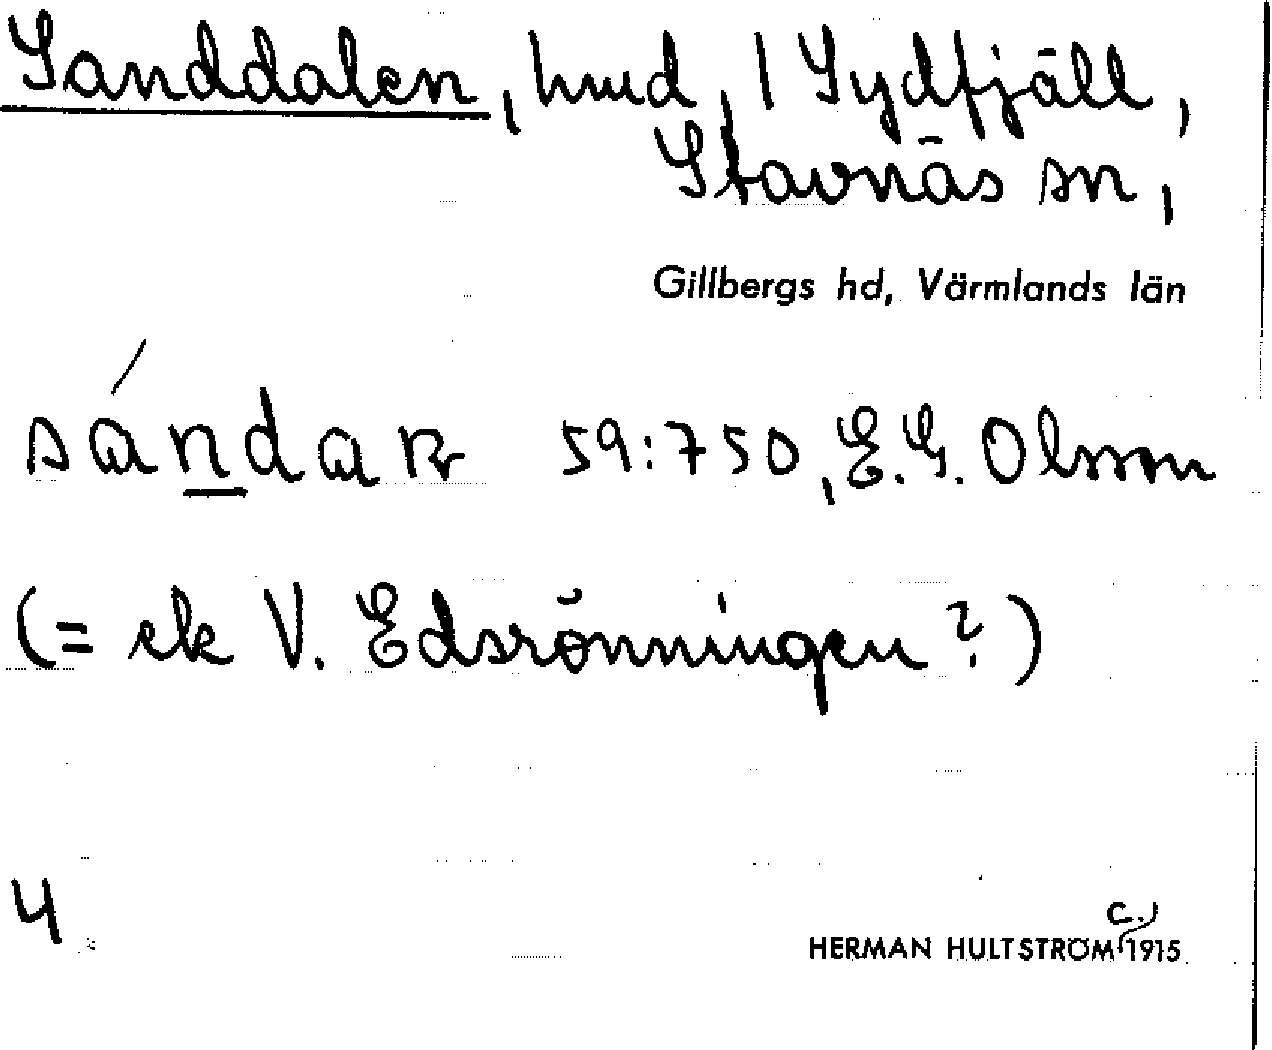 Sanddalen, hmd, 1 Sydfjäll,
Stavnäs sn,
Gillbergs hd, Värmlands län
sándaɳ 59:750, E.G. Olsson
(= ek V. Edsrönningen?)
4
HERMAN HULTSTRÖM c. 1915